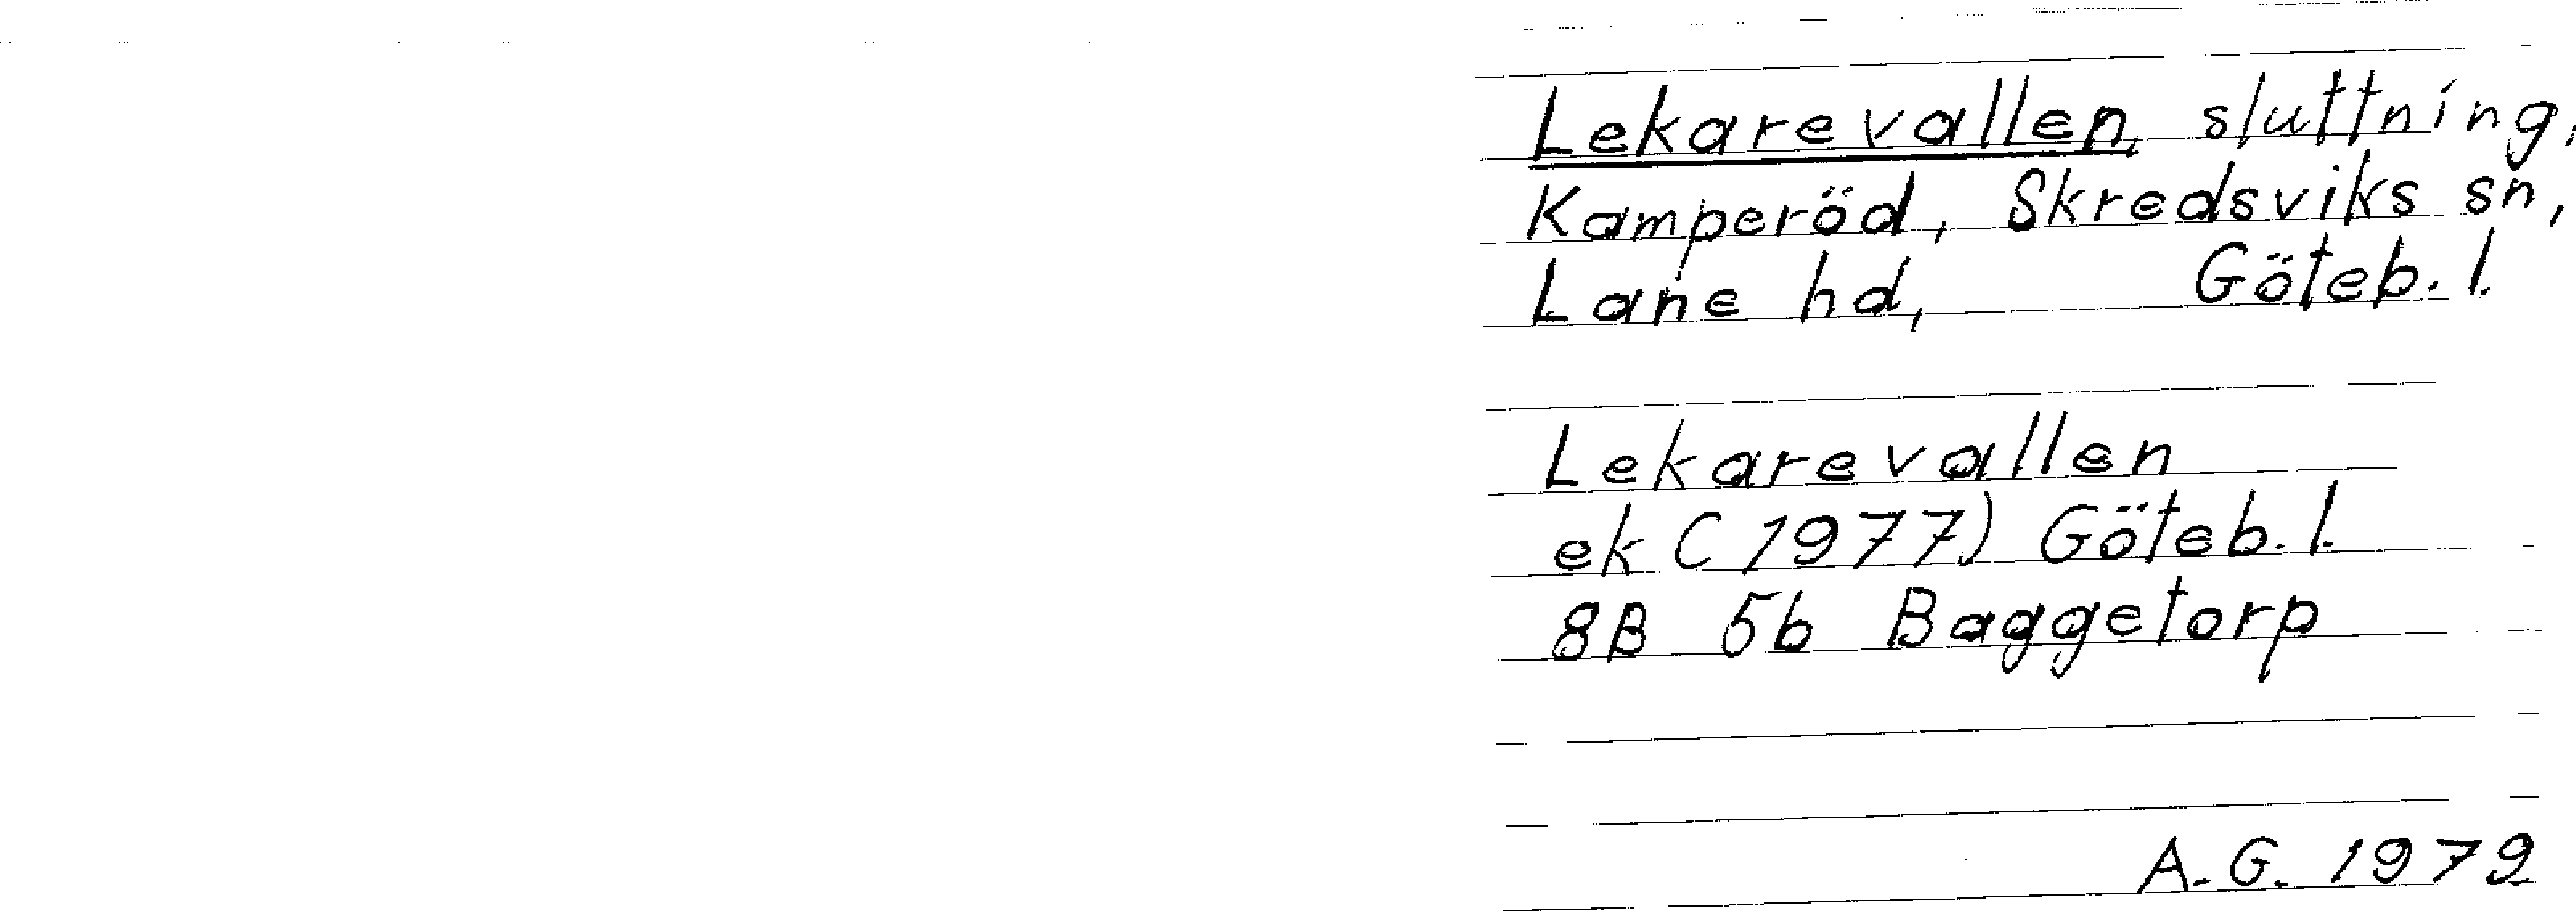 Lekarevallen, sluttning,
Kamperöd, Skredsviks sn,
Lane hd, Göteb. l.
Lekarevallen
ek (1977) Göteb. l.
8B 5b Baggetorp
A.G. 1979